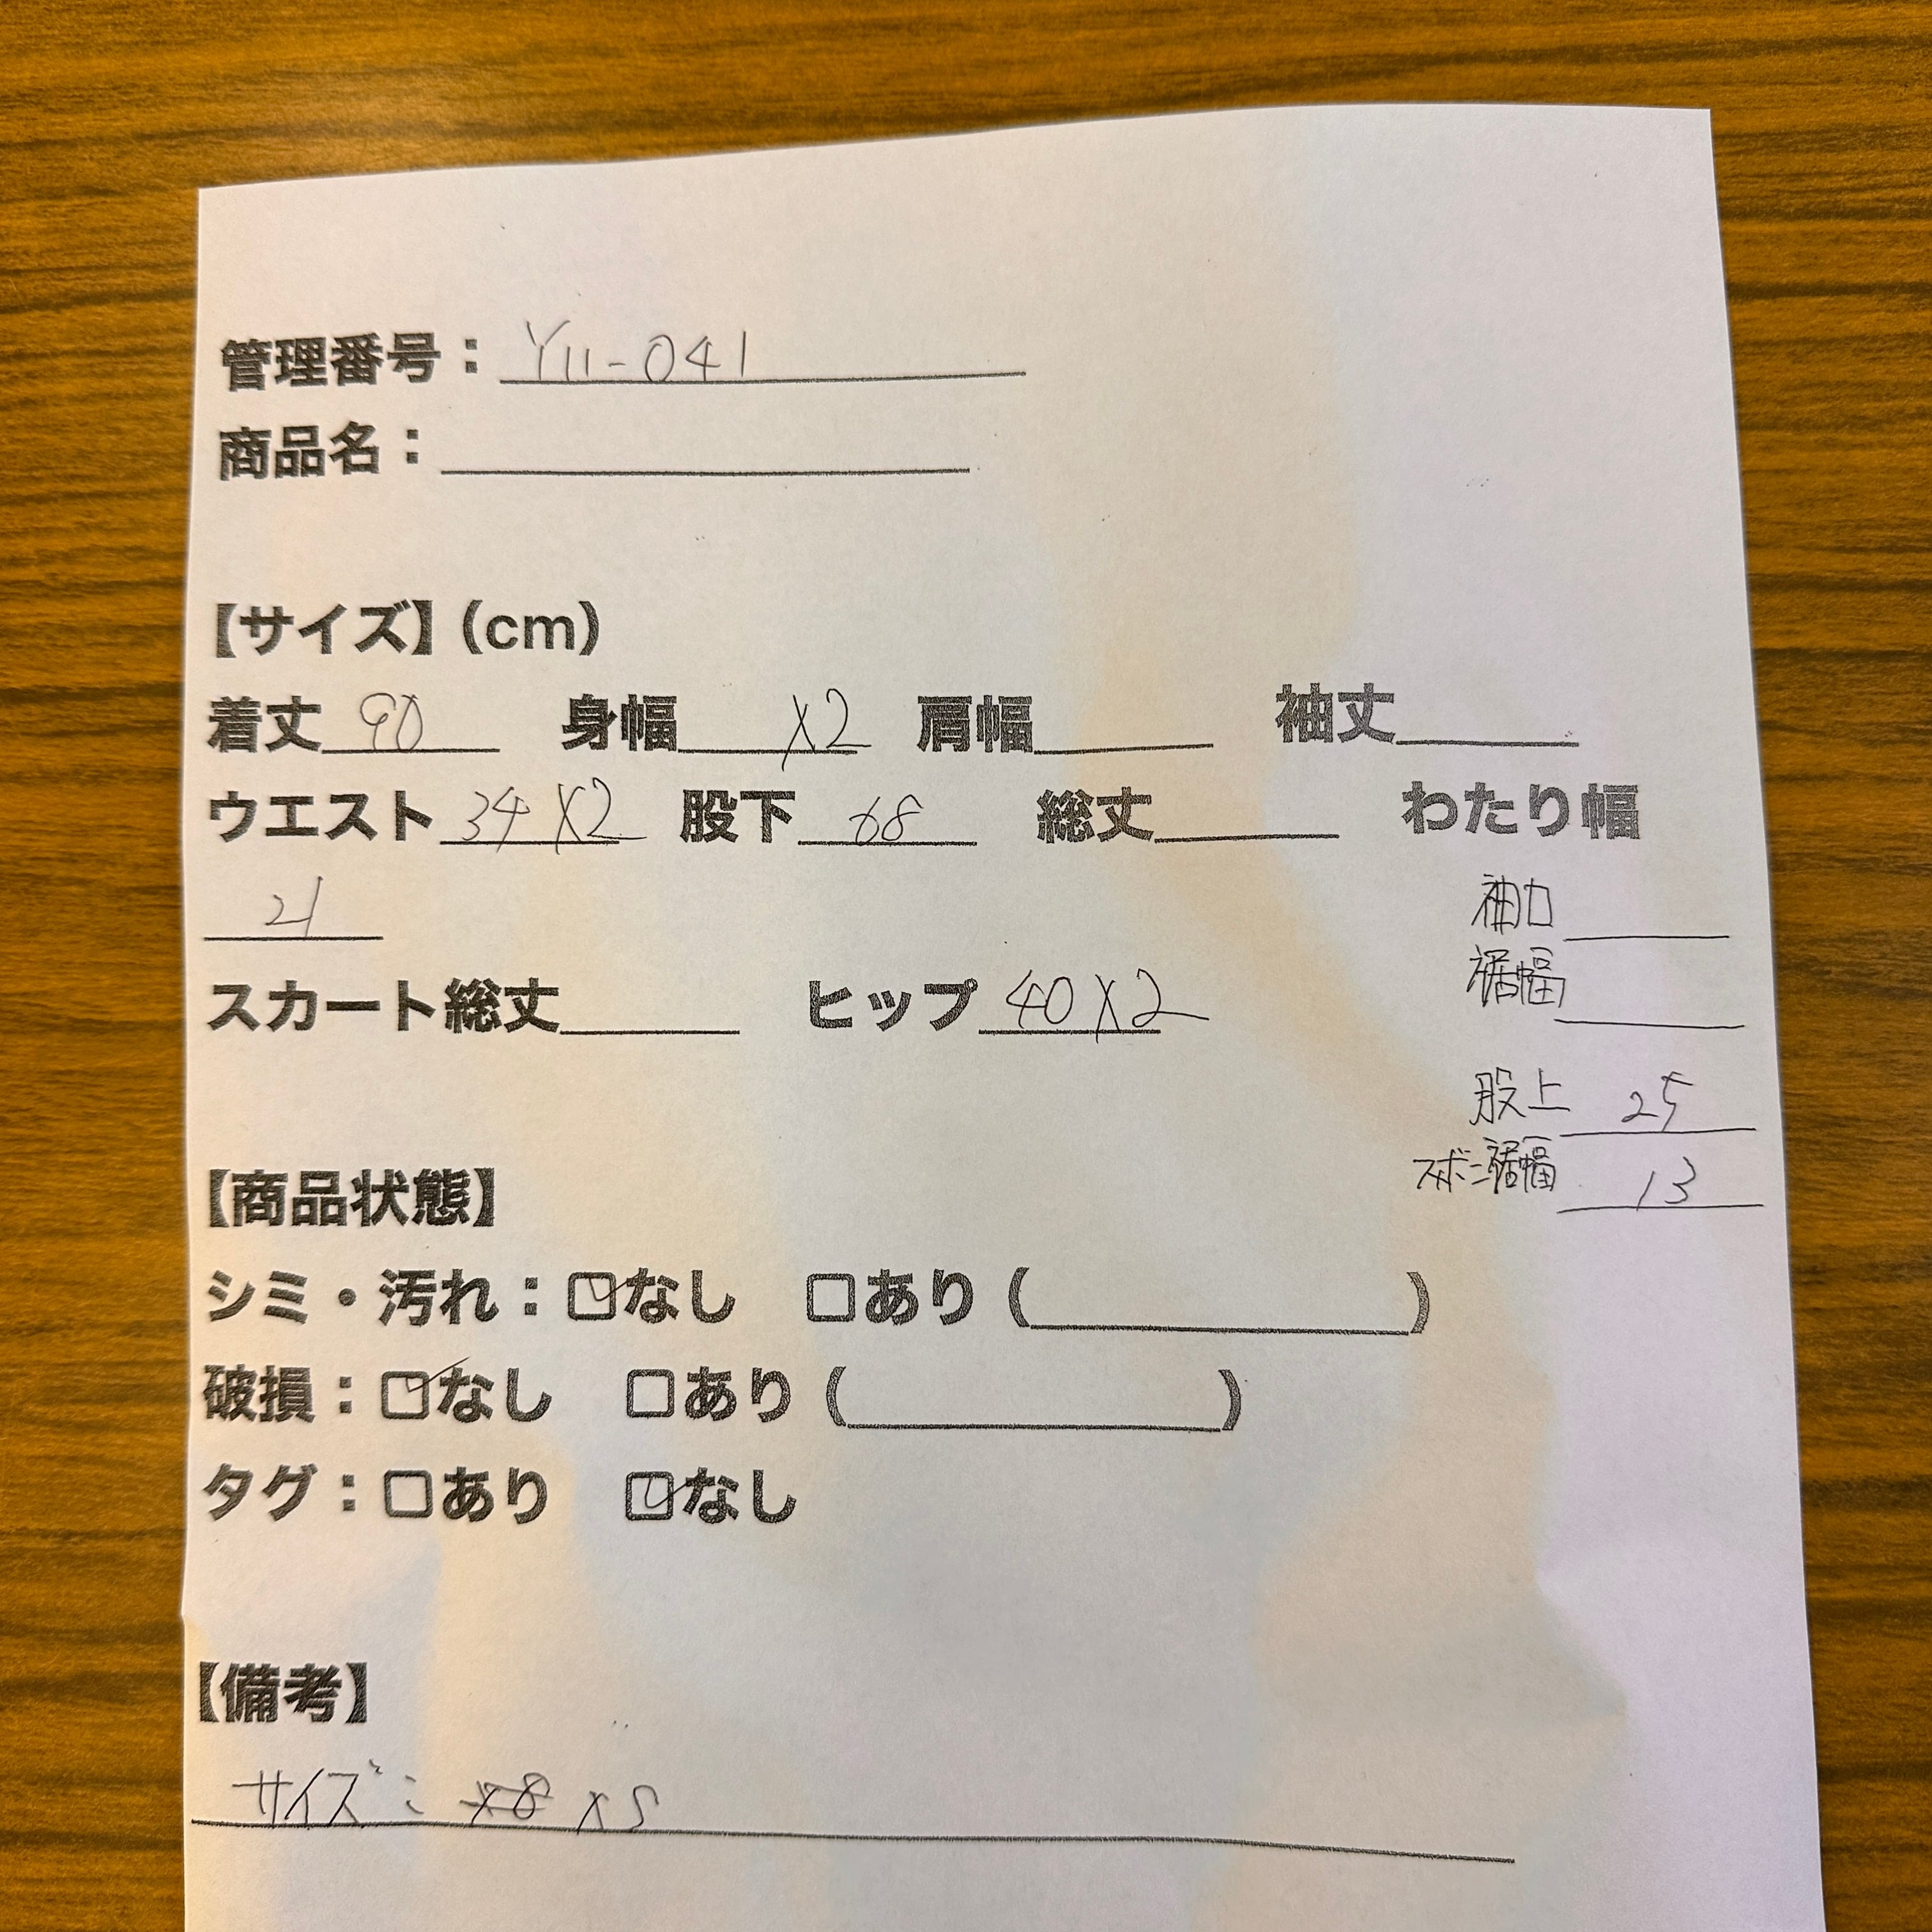 管理番号：Y11-041
商品名：
【サイズ】(cm)
着丈 90 身幅 ×2 肩幅 袖丈
ウエスト 34×2 股下 68 総丈 わたり幅
21
袖口
裾幅
スカート総丈 ヒップ 40×2
股上 25
ズボン裾幅 13
【商品状態】
シミ・汚れ：☑なし □あり（ ）
破損：☑なし □あり（ ）
タグ：□あり ☑なし
【備考】
サイズ： XS